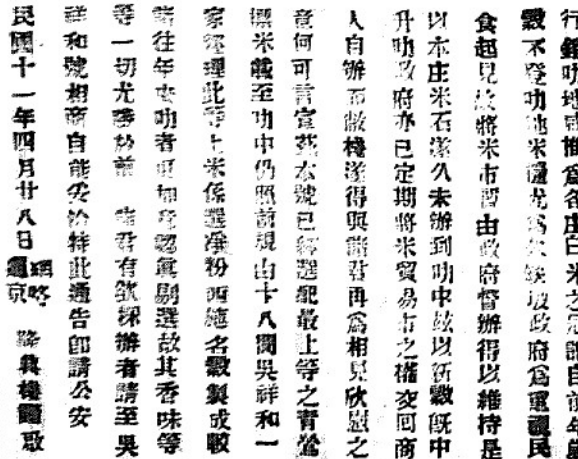 行銷叻地或推爲各庄白米之冠詎自前年歲
穀不登叻地米糧尤爲缺坡政府爲重視民
食起見故將米市暫由政府督辦得以維持是
以本庄米石濴久未辦到叻中玆以新穀旣中
升叻政府亦已定期將米貿易市之權交回商
人自辦而敝棧遂得與諸君再爲相見欣慰之
竟何可言宣茲本號已經選配最上等之靑
標米載至叻中仍照前規由十八間吳祥和一
家經理此等上米係選淨粉西施名穀製成較
諸往年來叻者更加意認眞剔選故其香味等
等一切尤勝於前 諸君有欲採辦者請至吳
祥和號相商自能妥洽特此通告卽請公安
民國十一年四月廿八日 京 隆興棧謹啟